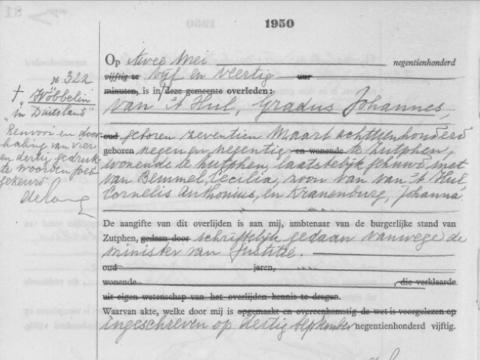 1950
Op twee Mei negentienhonderd
vijftig te vijf en veertig uur
minuten, is in deze gemeente overleden:
van 't Hul, Gradus Johannes,
oud geboren zeventien Maart achttienhonderd
geboren negen en negentig en wonende te Zutphen,
wonende te Zutphen, laatstelijk gehuwd met
van Bemmel, Cecilia, zoon van van 't Hul
Cornelis Anthonius, en Kranenburg, Johanna
De aangifte van dit overlijden is aan mij, ambtenaar van de burgerlijke stand van
Zutphen, gedaan door schriftelijk gedaan vanwege de
minister van Justitie.
oud jaren,
wonende , die verklaarde
uit eigen wetenschap van het overlijden kennis te dragen.
Waarvan akte, welke door mij is opgemaakt en overeenkomstig de wet is voorgelezen op
ingeschreven op dertig September negentienhonderd vijftig.
№ 322
† "Wöbbelin
in Duitsland"
Renvooi en door
haling van vier
en dertig gedruk
te woorden goed
gekeurd